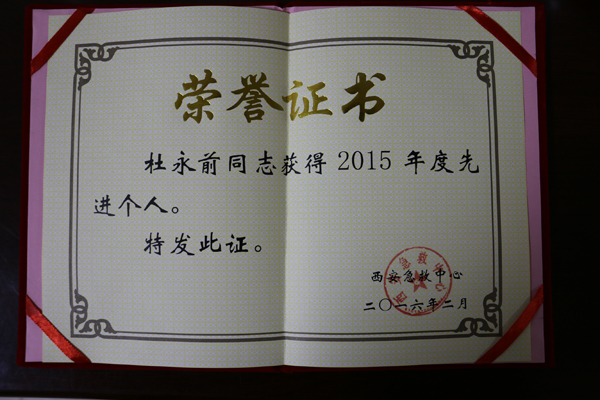 荣誉证书
杜永前同志获得 2015 年度先
进个人。
特发此证。
西安急救中心
二〇一六年二月